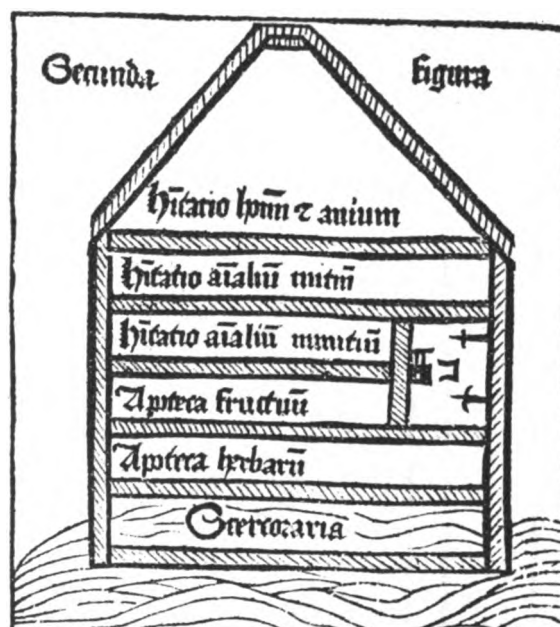 Secunda figura
Hĩtatio hoĩm ⁊ auium
Hĩtatio aĩaliũ mitiũ
Hĩtatio aĩaliũ ĩmitiũ
Apoteca fructuũ
Apoteca herbarũ
Stercoraria